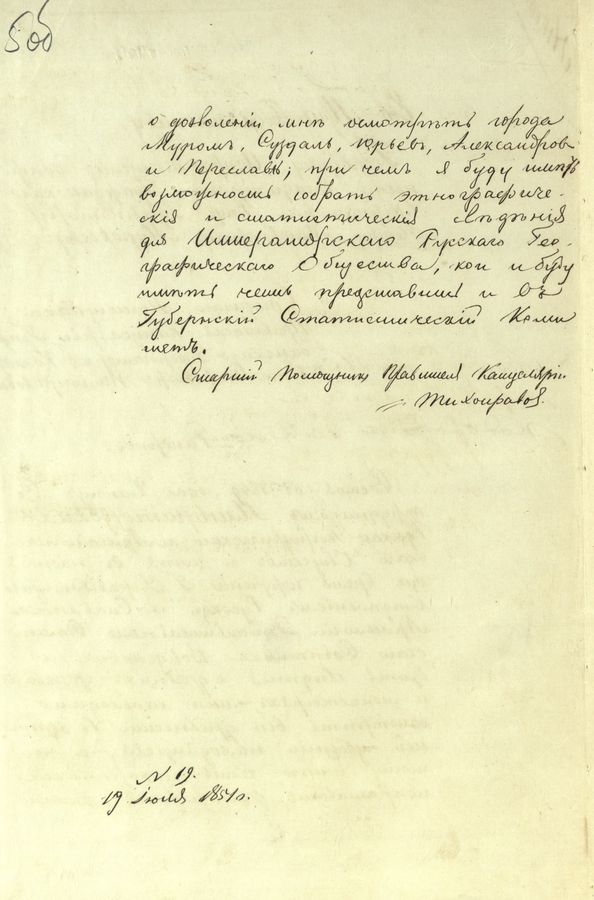 5об
о дозволеніи мнѣ осмотрѣть города
Муромъ, Суздаль, Юрьевъ, Александровъ
и Переславль; при чемъ я буду имѣть
возможность собрать этнографиче-
скія и статистическія свѣдѣнія
для Императорскаго Русскаго Гео-
графическаго Общества, кои и буду
имѣть честь представить и въ
Губернскій Статистическій Коми
тетъ.
Старшій Помощникъ Правителя Канцеляріи
Тихонравовъ.
N 19.
19 Іюля 1851 г.